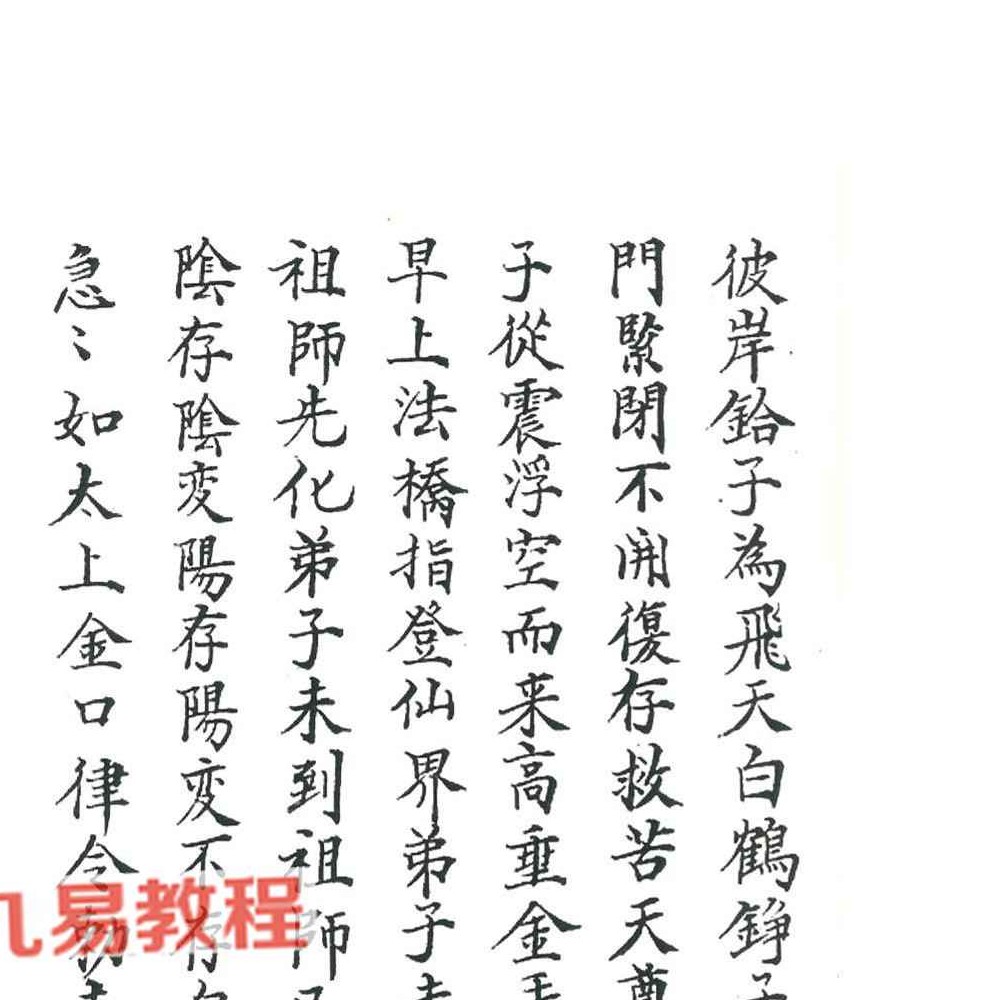 彼岸鉿子為飛天白鶴錚子
門緊閉不開復存救苦天尊
子從震浮空而来高垂金玉
早上法橋指登仙界弟子未
祖師先化弟子未到祖師
陰存陰変陽存陽変不存
急〻如太上金口律令勅
九易教程